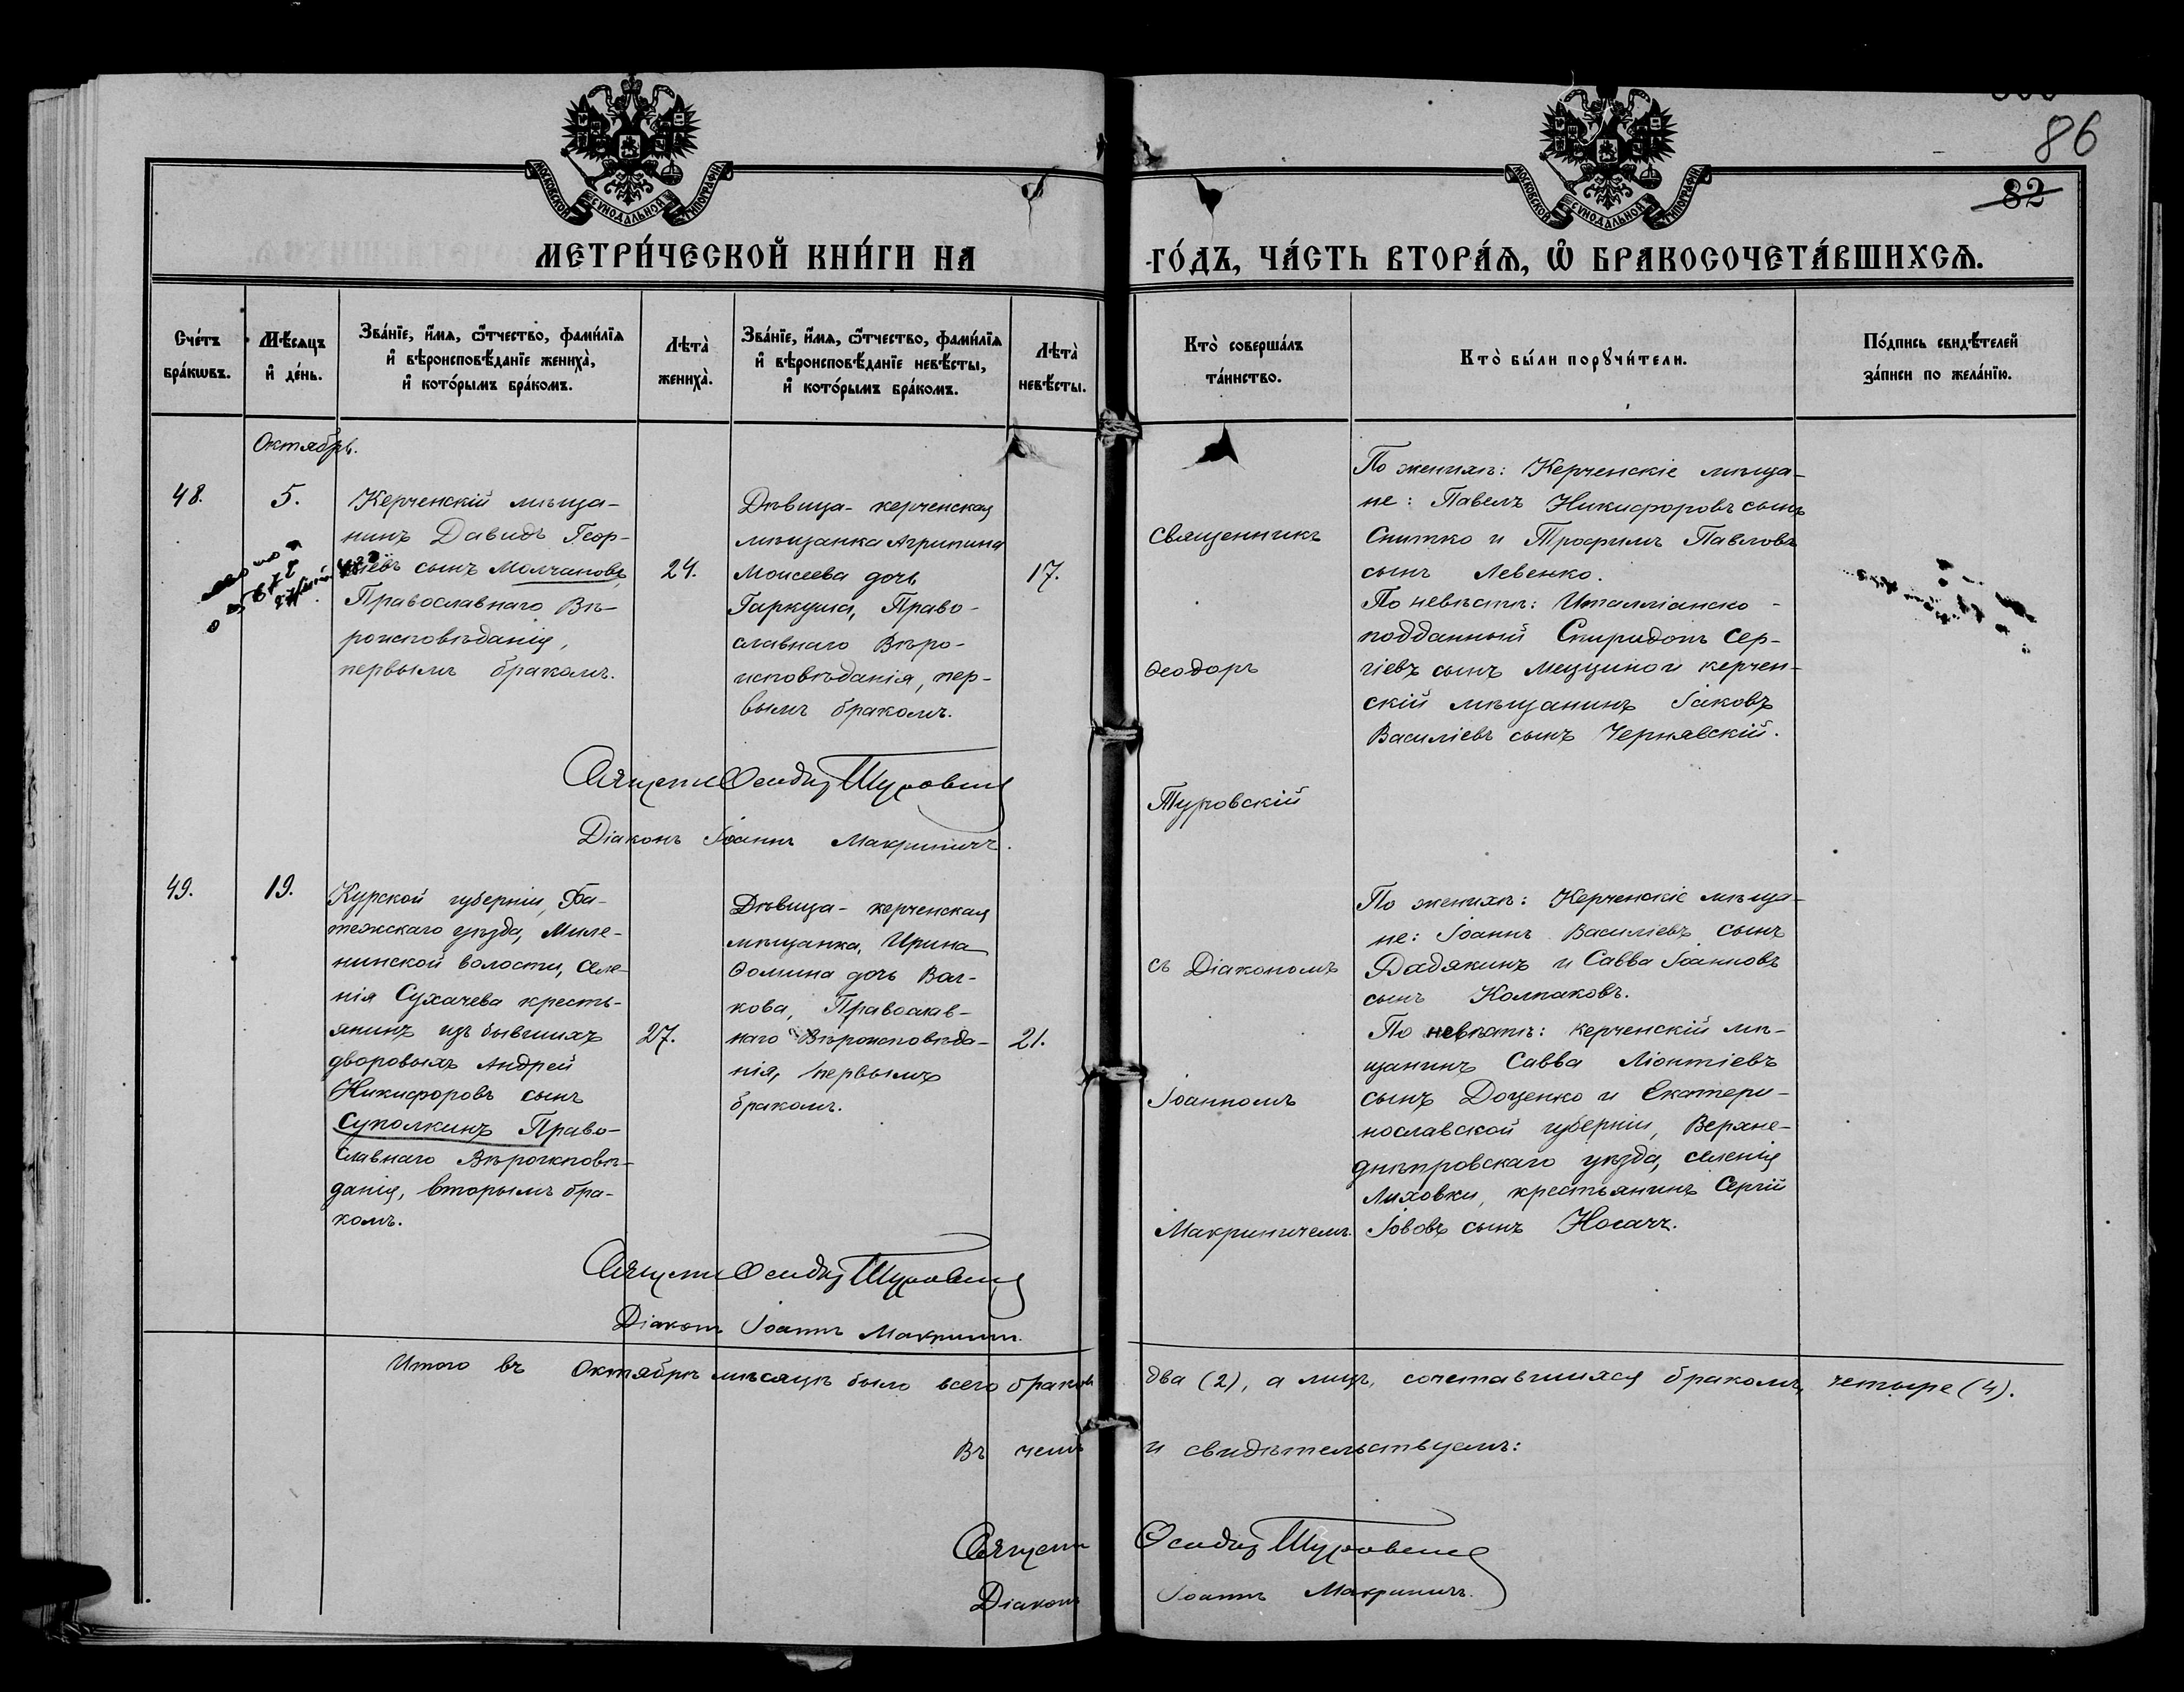 86
82
МОСКОВСКОЙ СѴНОДАЛЬНОЙ ТИПОГРАФІИ
МОСКОВСКОЙ СѴНОДАЛЬНОЙ ТИПОГРАФІИ
МЕТРИ́ЧЕСКОЙ КНИ́ГИ НА
ГО́ДЪ, ЧА́СТЬ ВТОРА́Ѧ, Ѽ БРАКОСОЧЕТА́ВШИХСѦ.
Сче́тъ
бра́кѡвъ.
Мѣ́сѧцъ
и҆ де́нь.
Зва́нїе, и҆́мѧ, ѻ҆́тчество, фами́лїѧ
и҆ вѣроисповѣ́данїе жениха̀,
и҆ кото́рымъ бра́комъ.
Лѣта̀
жениха̀.
Зва́нїе, и҆́мѧ, ѻ҆́тчество, фами́лїѧ
и҆ вѣроисповѣ́данїе невѣ́сты,
и҆ кото́рымъ бра́комъ.
Лѣта̀
невѣ́сты.
Кто̀ соверша́лъ
та́инство.
Кто̀ бы́ли порꙋчи́тели.
По́дпись свидѣ́телей
за́писи по жела́нїю.
Октябрь.
48.
5.
Керченскій мѣща-
нинъ Давидъ Геор-
гіевъ сынъ Молчановъ,
Православнаго Вѣ-
роисповѣданія,
первымъ бракомъ.
24.
Дѣвица - керченская
мѣщанка Агрипина
Моисеева дочь
Гаркуша, Право-
славнаго Вѣро-
исповѣданія, пер-
вымъ бракомъ.
17.
Священникъ
Ѳеодоръ
Туровскій
По женихѣ: Керченскіе мѣща-
не: Павелъ Никифоровъ сынъ
Снитко и Трофимъ Павловъ
сынъ Левенко.
По невѣстѣ: Италліанско-
подданный Спиридонъ Сер-
гіевъ сынъ Меццино и керчен-
скій мѣщанинъ Іаковъ
Василіевъ сынъ Чернявскій.
Священ Ѳеодоръ Туровскій
Діаконъ Іоаннъ Макриничъ.
49.
19.
Курской губерніи, Фа-
тежскаго уѣзда, Миле-
нинской волости, селе-
нія Сухачева кресть-
янинъ изъ бывшихъ
дворовыхъ Андрей
Никифоровъ сынъ
Суполкинъ Право-
славнаго Вѣроисповѣ-
данія, вторымъ бра-
комъ.
27.
Дѣвица - керченская
мѣщанка, Ирина
Ѳомина дочь Вол-
кова, Православ-
наго Вѣроисповѣда-
нія, первымъ
бракомъ.
21.
съ Діакономъ
Іоанномъ
Макриничемъ.
По женихѣ: Керченскіе мѣща-
не: Іоаннъ Василіевъ сынъ
Бадякинъ и Савва Іоанновъ
сынъ Колпаковъ.
По невѣстѣ: керченскій мѣ-
щанинъ Савва Ліонтіевъ
сынъ Доценко и Екатери-
нославской губерніи, Верхне-
днѣпровскаго уѣзда, селенія
Лиховки, крестьянинъ Сергій
Іововъ сынъ Носачъ.
Священ Ѳеодоръ Туровскій
Діаконъ Іоаннъ Макриничъ.
Итого въ Октябрѣ мѣсяцѣ было всего браковъ два (2), а лицъ, сочетавшихся бракомъ, четыре (4).
Въ чемъ и свидѣтельствуемъ:
Священ Ѳеодоръ Туровскій
Діаконъ Іоаннъ Макриничъ.